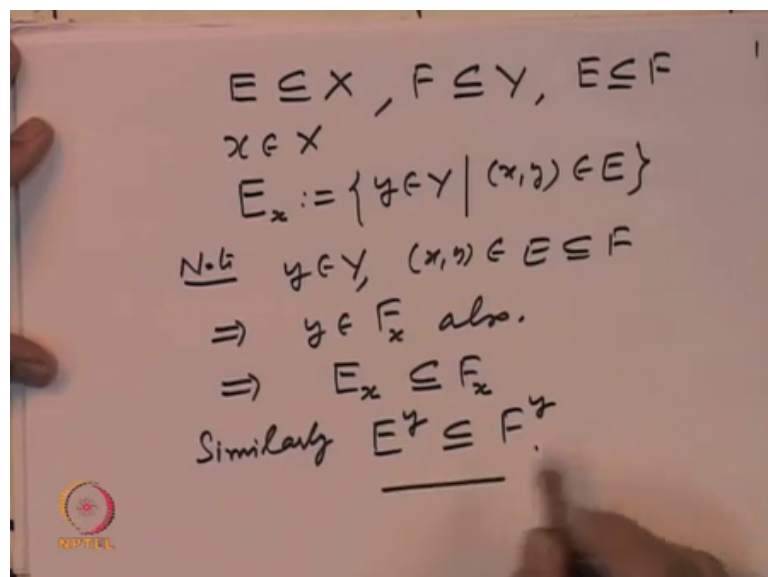 1
E ⊆ X , F ⊆ Y, E ⊆ F
x ∈ X
E_x := { y ∈ Y | (x,y) ∈ E }
Note y ∈ Y, (x,y) ∈ E ⊆ F
⇒ y ∈ F_x also.
⇒ E_x ⊆ F_x
Similarly E^y ⊆ F^y .
NPTEL